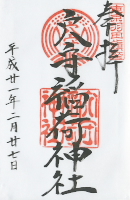 奉拝
穴守稲荷神社
平成廿一年二月廿七日